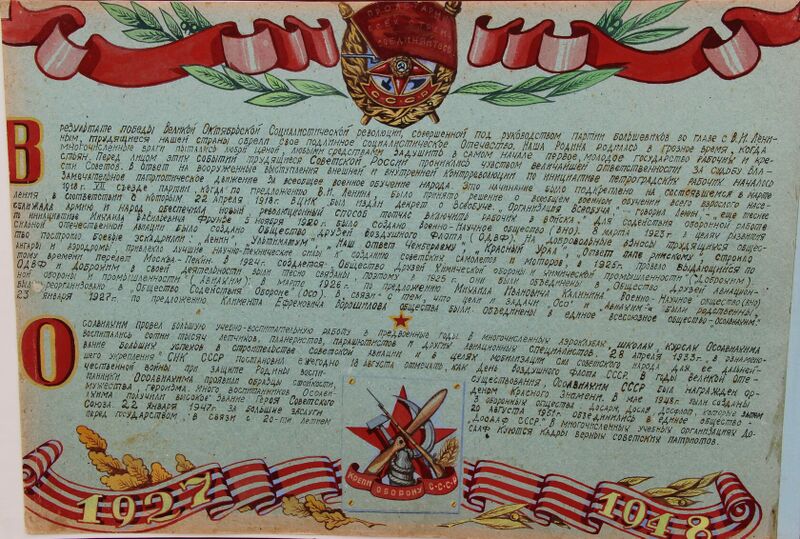 ПРОЛЕТАРИИ
ВСЕХ СТРАН
СОЕДИНЯЙТЕСЬ
СССР
В результате победы Великой Октябрьской Социалистической революции, совершенной под руководством партии большевиков во главе с В.И. Лени-
ным, трудящиеся нашей страны обрели свое подлинное социалистическое Отечество. Наша Родина родилась в грозное время, когда
многочисленные враги пытались любой ценой, любыми средствами задушить в самом начале первое, молодое государство рабочих и кре-
стьян. Перед лицом этих событий трудящиеся Советской России прониклись чувством величайшей ответственности за судьбу Вла-
сти Советов. В ответ на вооруженные выступления внешней и внутренней контрреволюции по инициативе петроградских рабочих началось
замечательное патриотическое движение за всеобщее военное обучение народа. Это начинание было подкреплено на состоявшемся в марте
1918 г. VII съезде партии, когда по предложению В.И. Ленина, было принято решение о всеобщем военном обучении всего взрослого насе-
ления в соответствии с которым 22 апреля 1918 г. ВЦИК был издан декрет о Всевобуче. „Организация Всевобуча", - говорил Ленин, - „еще теснее
сближала армию и народ обеспечила новый революционный способ тотчас включить рабочих в войска." Для содействия оборонной работе
по инициативе Михаила Васильевича Фрунзе 5 ноября 1920 г. было создано Военно-Научное общество (ВНО). 8 марта 1923 г. в целях развития
сильной отечественной авиации было создано Общество Друзей Воздушного Флота (ОДВФ). На добровольные взносы трудящихся общес-
тво построило боевые эскадрильи: „Ленин", „Ультиматум", „Наш ответ Чемберлену", „Красный Урал", „Ответ папе римскому", строило
ангары и аэродромы, привлекло лучшие научно-технические силы к созданию советских самолетов и моторов, в 1925 г. провело выдающийся по
тому времени перелет Москва-Пекин. В 1924 г. создается Общество Друзей Химической обороны и химической промышленности (Доброхим).
ОДВФ и Доброхим в своей деятельности были тесно связаны, поэтому в 1925 г. они были объединены в Общество Друзей Авиацион-
ной обороны и промышленности („Авиахим"). В марте 1926 г. по предложению Михаила Ивановича Калинина, Военно-Научное Общество (ВНО)
было реорганизовано в Общество Содействия Обороне (ОСО). В связи с тем, что цели и задачи ОСО и „Авиахим"-а были родственны,
23 января 1927 г. по предложению Климента Ефремовича Ворошилова общества были объединены в единое всесоюзное общество-Осоавиахим.
Осоавиахим провел большую учебно-воспитательную работу в предвоенные годы. В многочисленных аэроклубах, школах, курсах Осоавиахима
воспитались сотни тысяч летчиков, планеристов, парашютистов и других авиационных специалистов. 28 апреля 1933 г. в ознамено-
вание больших успехов в строительстве советской авиации и в целях мобилизации сил советского народа для ее дальней-
шего укрепления СНК СССР постановил ежегодно 18 августа отмечать, как День Воздушного флота СССР. В годы Великой Оте-
чественной войны при защите Родины воспи-
танники Осоавиахима проявили образцы стойкости,
мужества, героизма. Много воспитанников Осоави-
ахима получили высокое звание Героя Советского
Союза. 22 января 1947 г. за большие заслуги
перед государством, в связи с 20-ти летием
существования, Осоавиахим СССР был награжден ор-
деном Красного Знамени. В мае 1948 г. были созданы
3 оборонных общества: Досарм, Досав, Досфлот, которые затем
20 августа 1951 г. объединились в единое общество -
„ДОСААФ СССР". В многочисленных учебных организациях До-
сааф куются кадры верных советских патриотов.
КРЕПИ ОБОРОНУ С.С.С.Р
1927
1948